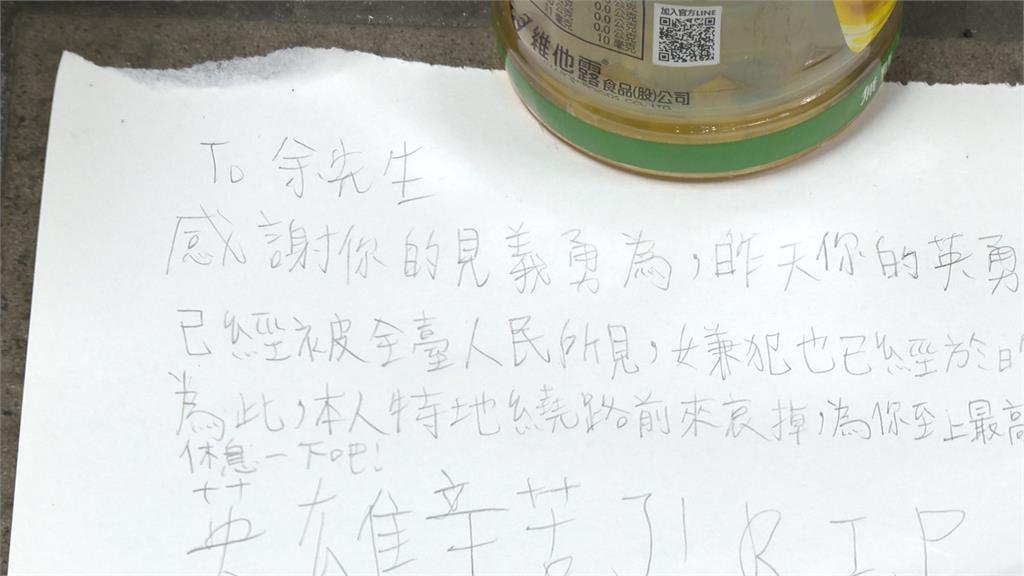 加入官方LINE
0.0
0.0
10
維他露®
食品(股)公司
To 余先生
感謝你的見義勇為,昨天你的英勇
已經被全臺人民所見,嫌犯也已經於
為此,本人特地繞路前來哀掉,為你至上最高
休息一下吧!
英雄辛苦了! R I P